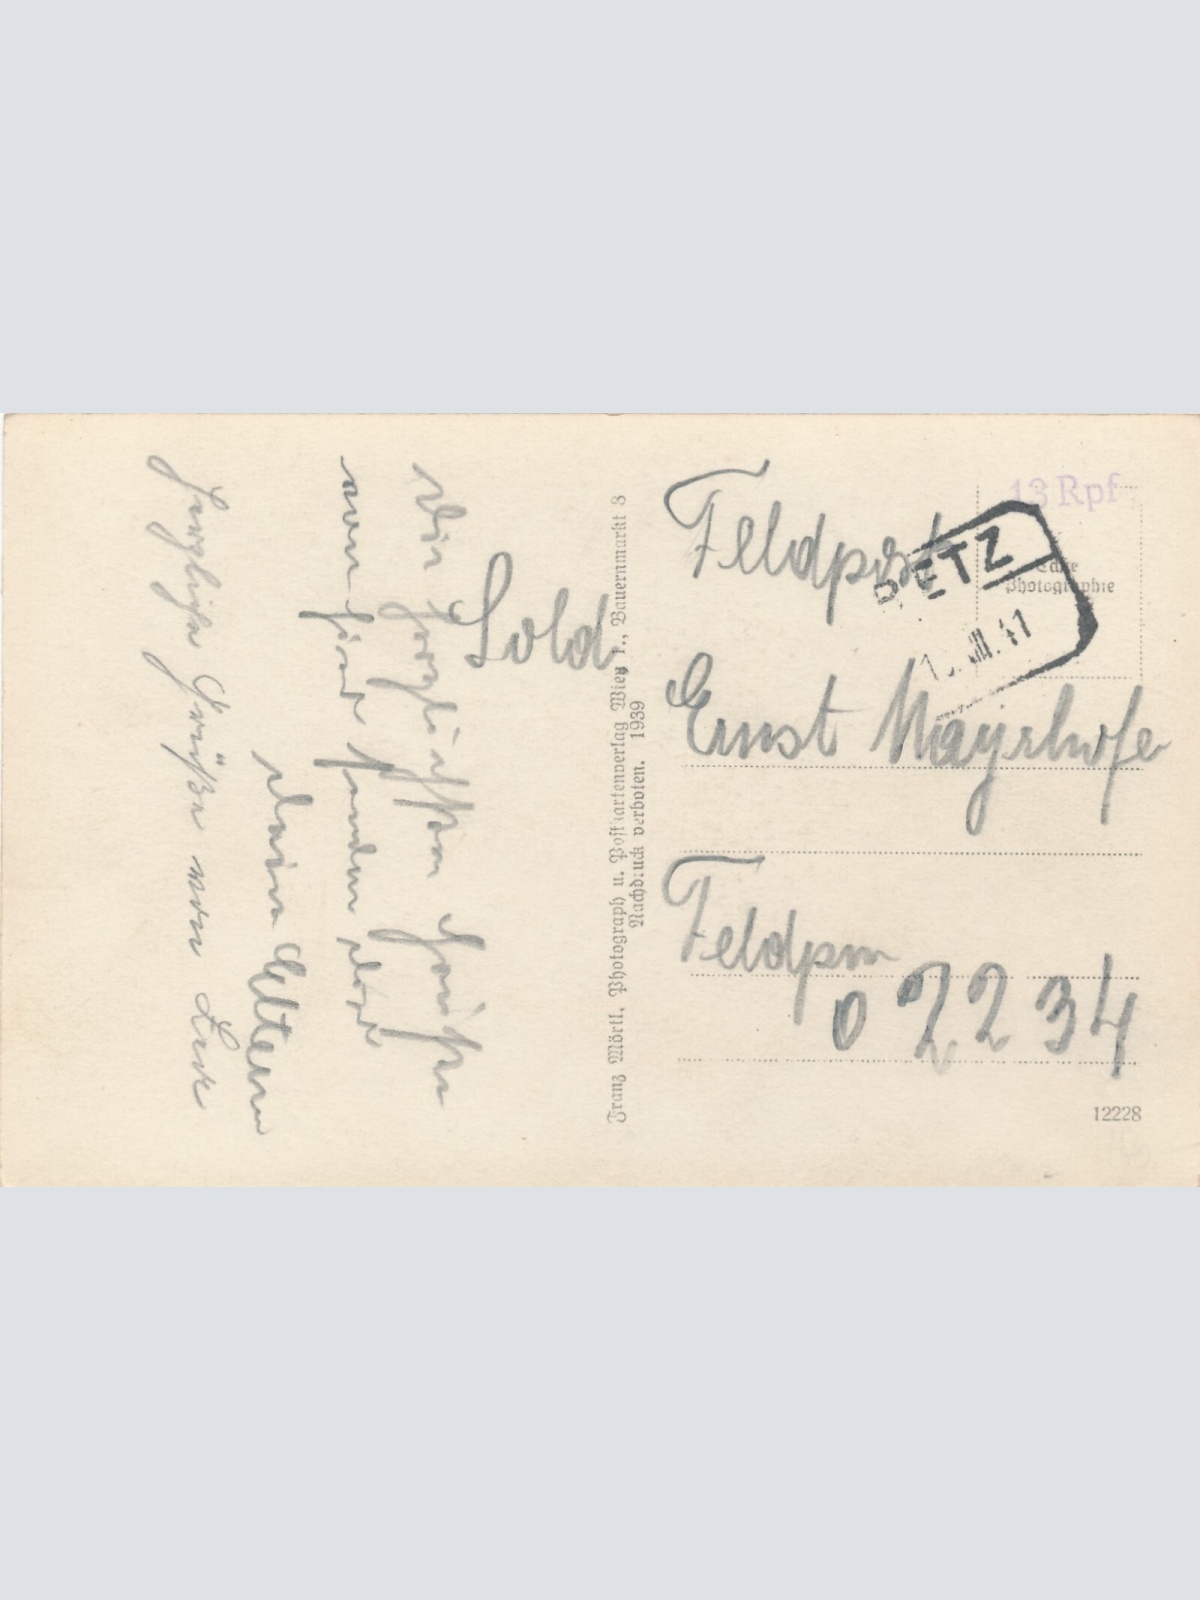 Die herzlichsten Grüße
von hier senden dir
deine Eltern
Herzliche Grüße von
Franz Mörtl, Photograph u. Postkartenverlag Wien 1., Bauernmarkt 3
Nachdruck verboten. 1939
13 Rpf
Echte
Photographie
RETZ
.VIII.41
Feldpost
Sold.
Ernst Mayrhofer
Feldpnr
02234
12228